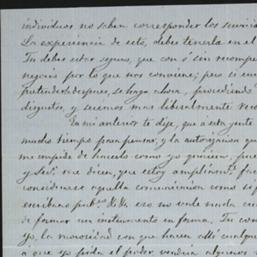 individuos no saben corresponder los servicios
La experiencia de esto, debes tenerla en el
Tu debes estar seguro, que con ó sin recompen
negocio por lo que nos conviene; pero si
pretender despues, se haga ahora, procediendo
disgustos, y seremos mas liberalmente
En mi anterior te dije, que á esta gente
mucho tiempo para pensar, y la autorizacion que
me impide de hacerlo como yo quisiera, pues
y me dicen, que estoy ampliamte fac
considerase aquella comunicacion como si
escribano pubco eso no vale nada
de formar un instrumento en forma, Tu con
yo, la morosidad con que hacen allí cualqui
á que yo pida el poder vendria algunos